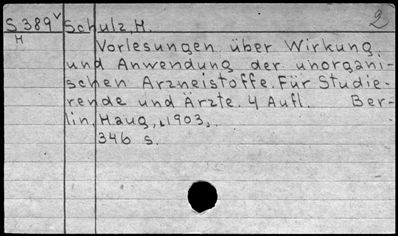 S389v Schulz, H. 2
H
Vorlesungen über Wirkung
und Anwendung der unorgani-
schen Arzneistoffe. Für Studie-
rende und Ärzte. 4 Aufl. Ber-
lin, Haug, 1903.
346 s.